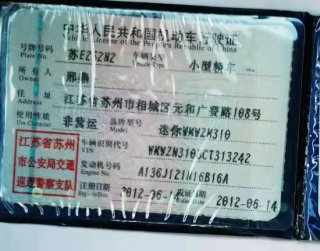 中华人民共和国机动车行驶证
Vehicle License of the People's Republic of China
号牌号码 苏E2S2N2 车辆类型 小型轿车
Plate No. Vehicle Type
所有人 邢
Owner
住址 江苏省苏州市相城区元和广登路108号
Address
使用性质 非营运 品牌型号 迷你WMWZN310
Use Character Model
江苏省苏州市公安局交通巡逻警察支队
车辆识别代号 WMWZN310SCT313242
VIN
发动机号码 A136J121N16B16A
Engine No.
注册日期 2012-06-14 发证日期 2012-06-14